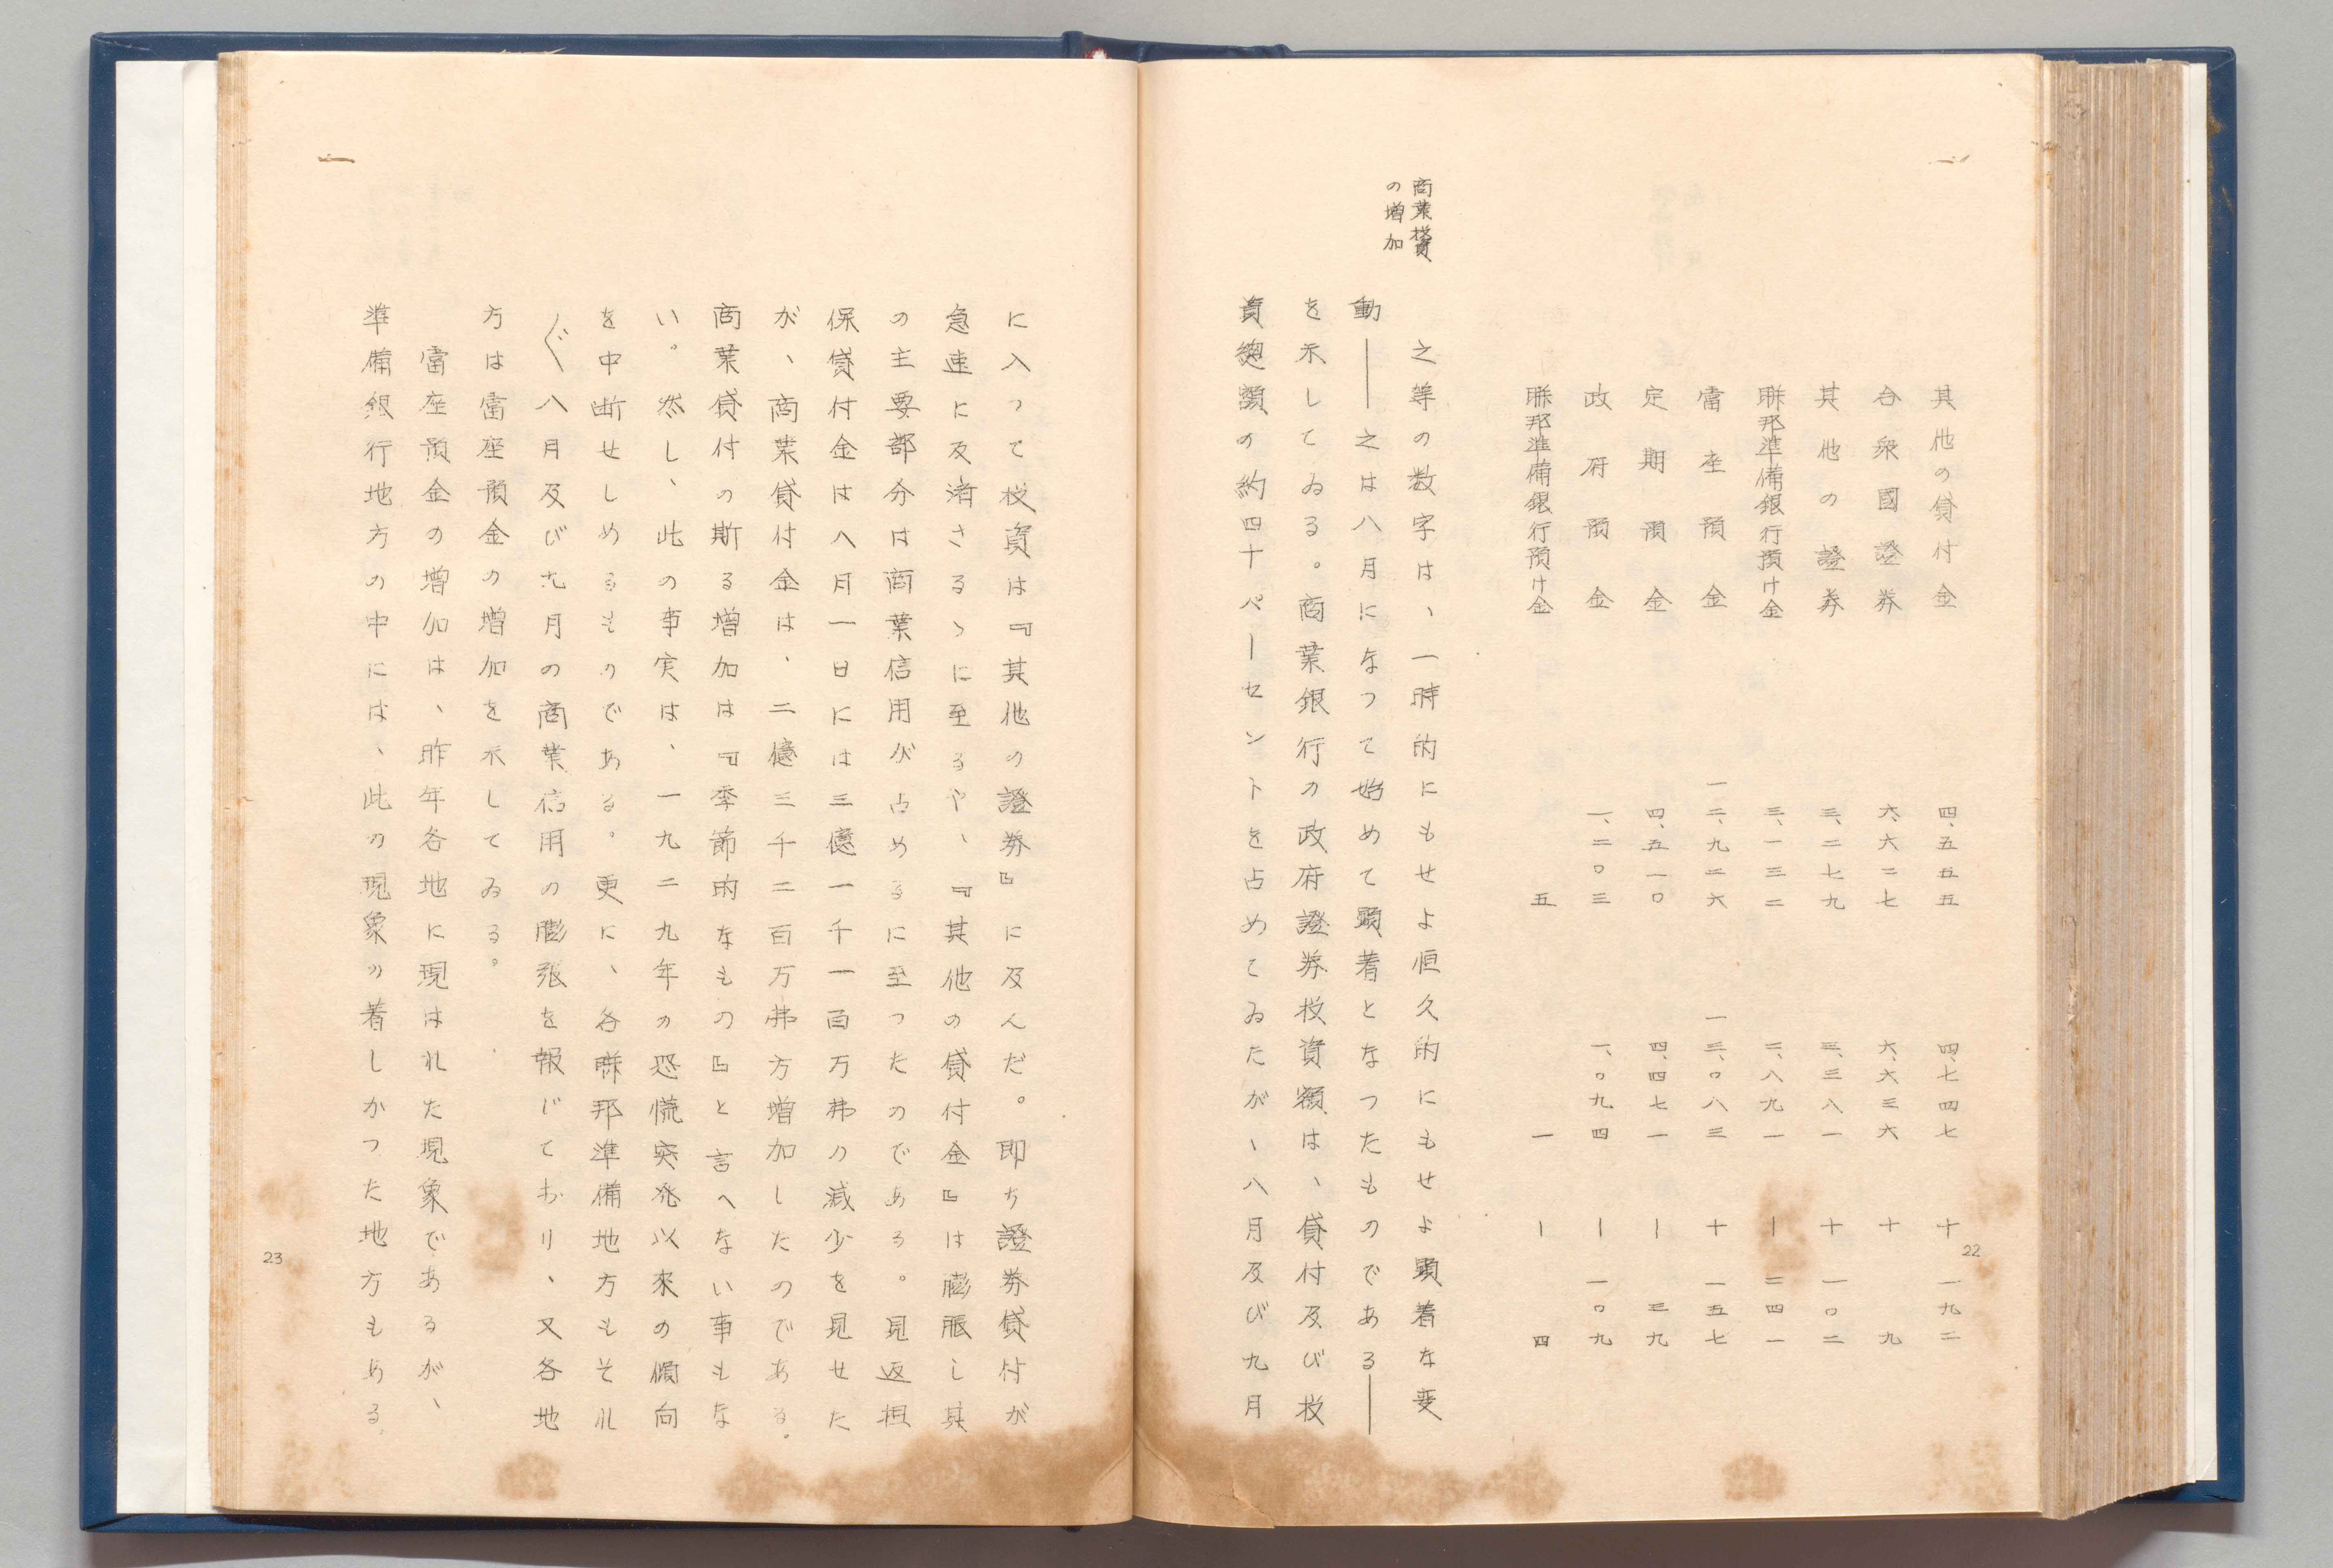 其他の貸付金　四、五五五　四、七四七　十　一九二
合衆國證券　六、六二七　六、六三六　十　九
其他の證券　三、二七九　三、三八一　十　一〇二
聯邦準備銀行預け金　三、一三二　二、八九一　ー　二四一
當座預金　一二、九二六　一三、〇八三　十　一五七
定期預金　四、五一〇　四、四七一　ー　三九
政府預金　一、二〇三　一、〇九四　ー　一〇九
聯邦準備銀行預け金　五　一　ー　四
商業投資
の増加
之等の数字は、一時的にもせよ恒久的にもせよ顕着な変
動――之は八月になつて始めて顕着となつたものである――
を示してゐる。商業銀行の政府證券投資額は、貸付及び投
資総額の約四十パーセントを占めてゐたが、八月及び九月
22
に入つて投資は『其他の證券』に及んだ。即ち證券貸付が
急速に反済さるゝに至るや、『其他の貸付金』は膨脹し其
の主要部分は商業信用が占めるに至つたのである。見返担
保貸付金は八月一日には三億一千一百万弗の減少を見せた
が、商業貸付金は、二億三千二百万弗方増加したのである。
商業貸付の斯る増加は『季節的なもの』と言へない事もな
い。然し、此の事実は、一九二九年の恐慌突発以來の傾向
を中断せしめるものである。更に、各聯邦準備地方もそれ
〲八月及び九月の商業信用の膨張を報じており、又各地
方は當座預金の増加を示してゐる。
當座預金の増加は、昨年各地に現はれた現象であるが、
準備銀行地方の中には、此の現象の着しかつた地方もある
23